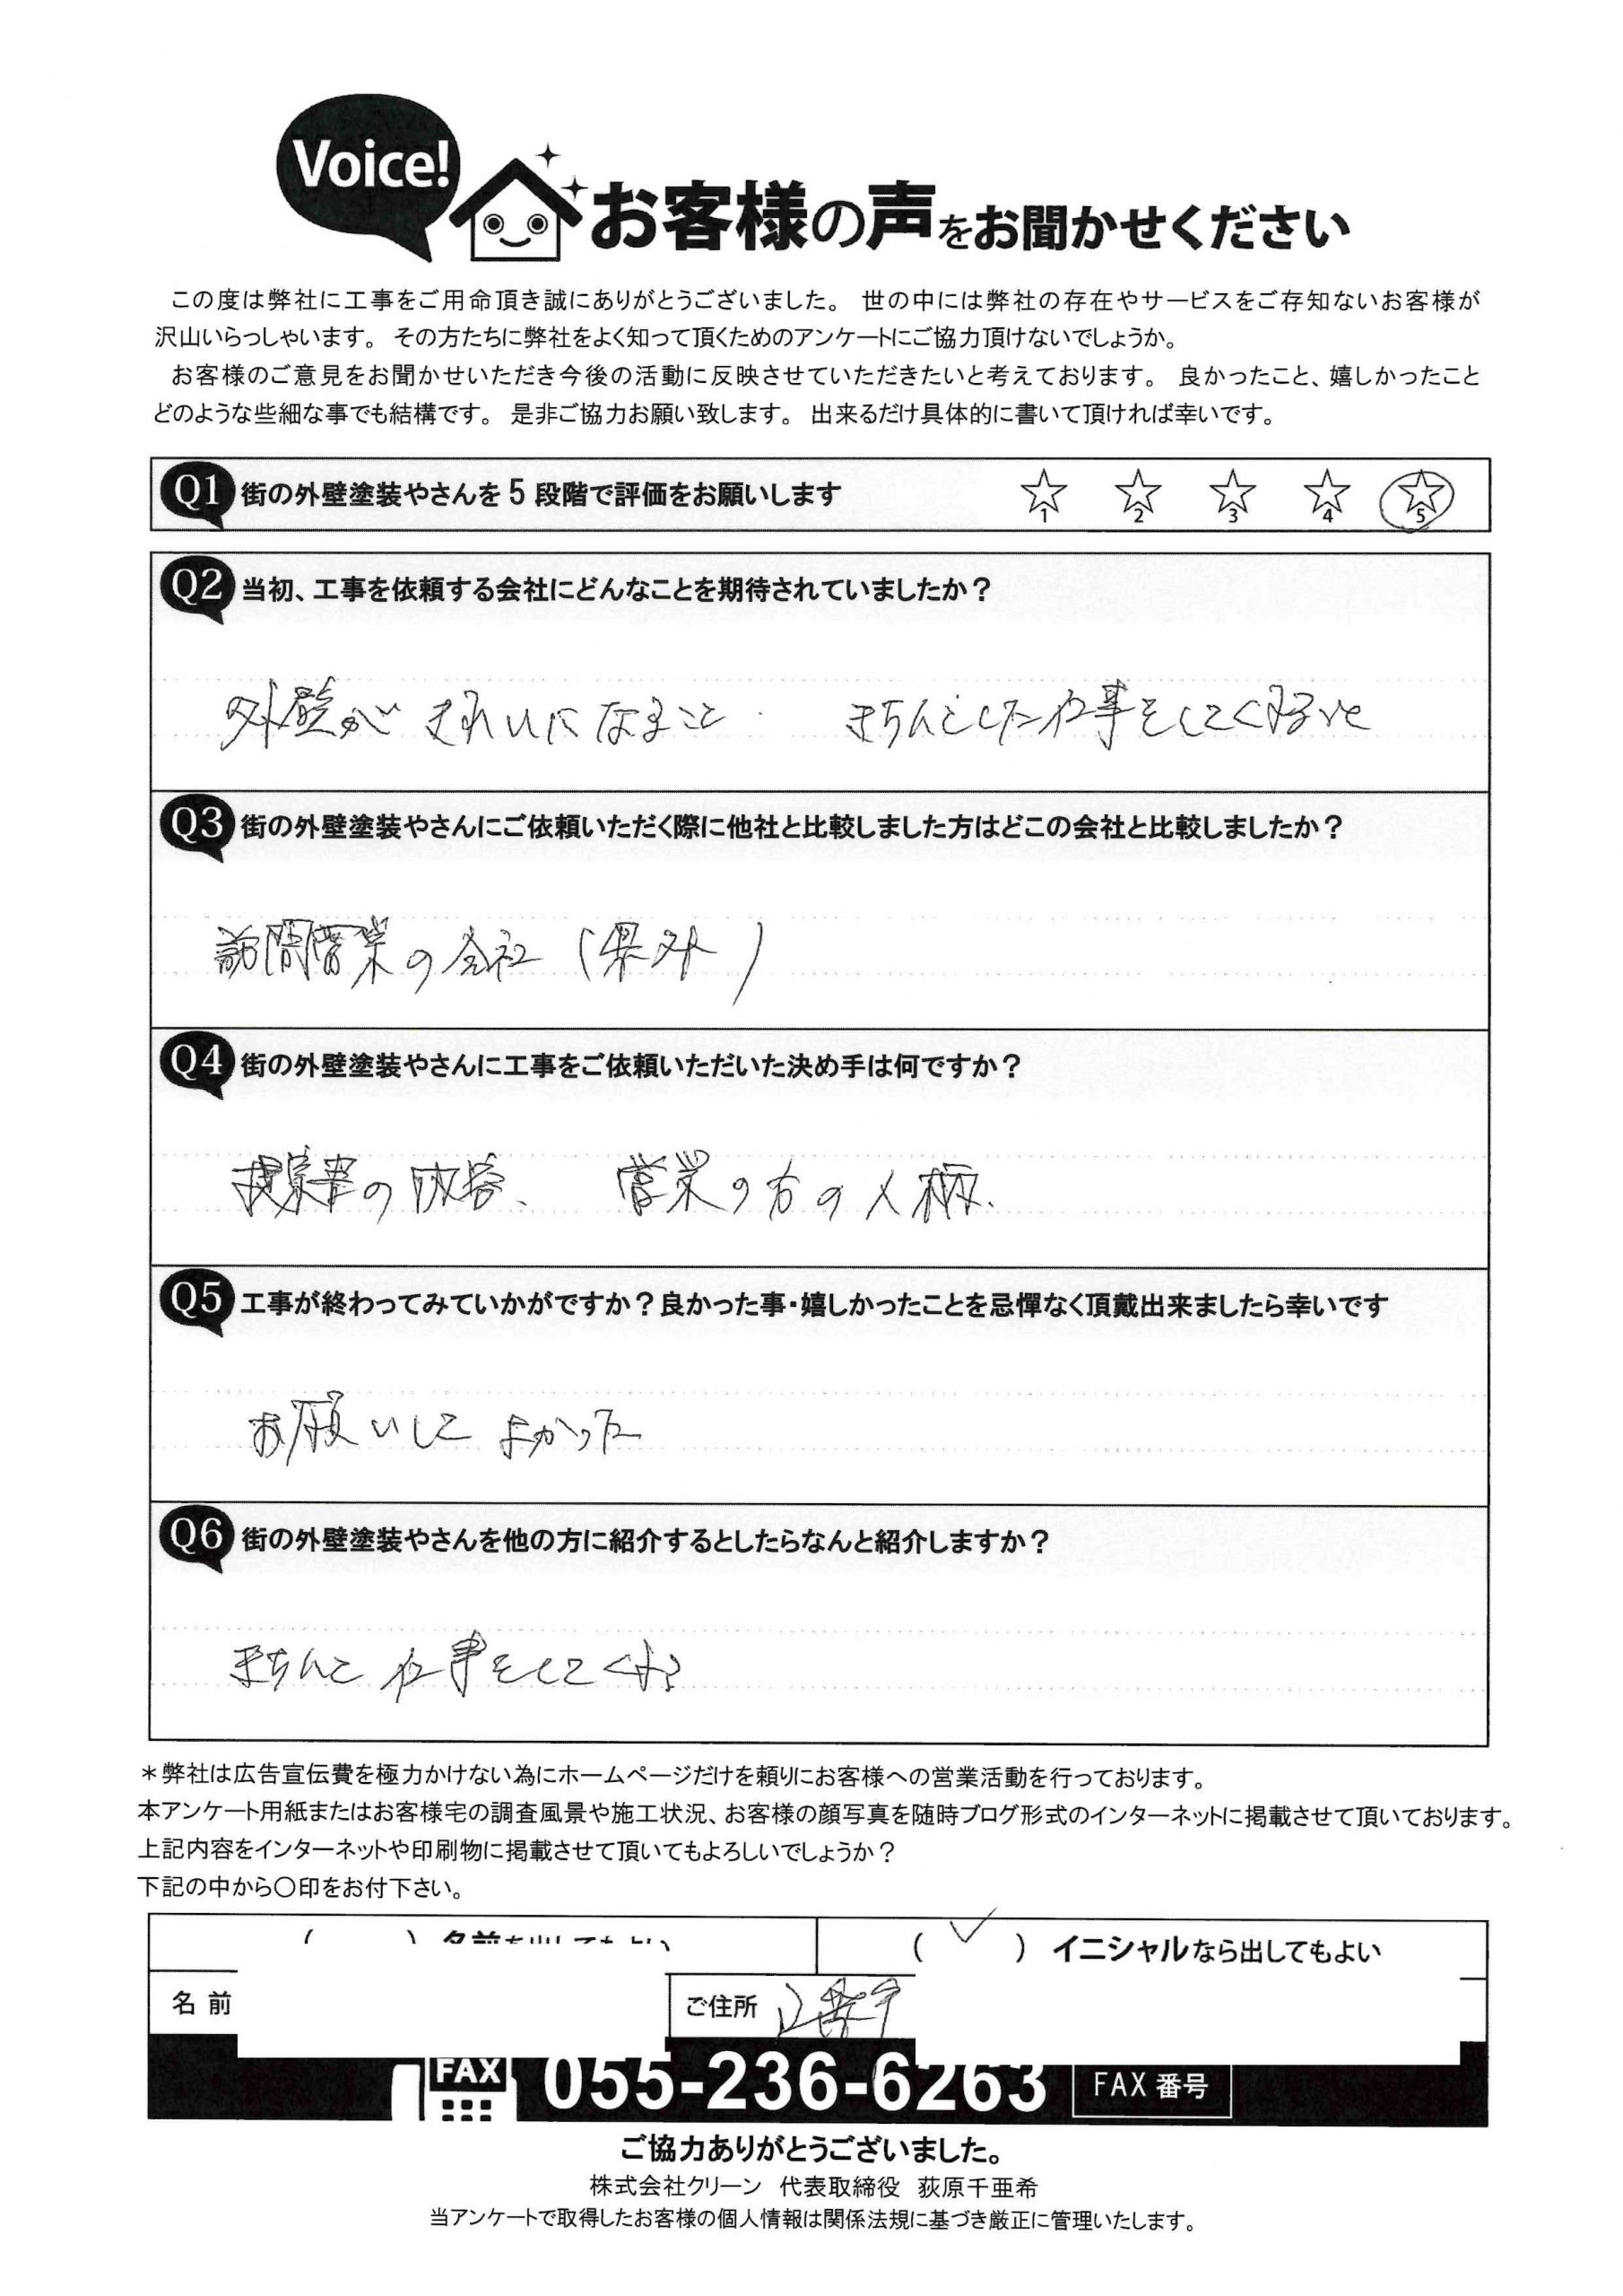 Voice!
お客様の声をお聞かせください
この度は弊社に工事をご用命頂き誠にありがとうございました。 世の中には弊社の存在やサービスをご存知ないお客様が
沢山いらっしゃいます。 その方たちに弊社をよく知って頂くためのアンケートにご協力頂けないでしょうか。
お客様のご意見をお聞かせいただき今後の活動に反映させていただきたいと考えております。 良かったこと、嬉しかったこと
どのような些細な事でも結構です。 是非ご協力お願い致します。 出来るだけ具体的に書いて頂ければ幸いです。
Q1 街の外壁塗装やさんを5段階で評価をお願いします ☆1 ☆2 ☆3 ☆4 ☆5
Q2 当初、工事を依頼する会社にどんなことを期待されていましたか？
外壁がきれいになること. きちんとした仕事をしてくれること
Q3 街の外壁塗装やさんにご依頼いただく際に他社と比較しました方はどこの会社と比較しましたか？
訪問営業の会社（県外）
Q4 街の外壁塗装やさんに工事をご依頼いただいた決め手は何ですか？
提案書の内容、 営業の方の人柄、
Q5 工事が終わってみていかがですか？良かった事・嬉しかったことを忌憚なく頂戴出来ましたら幸いです
お願いして よかった
Q6 街の外壁塗装やさんを他の方に紹介するとしたらなんと紹介しますか？
きちんと 仕事をしてくれる
＊弊社は広告宣伝費を極力かけない為にホームページだけを頼りにお客様への営業活動を行っております。
本アンケート用紙またはお客様宅の調査風景や施工状況、お客様の顔写真を随時ブログ形式のインターネットに掲載させて頂いております。
上記内容をインターネットや印刷物に掲載させて頂いてもよろしいでしょうか？
下記の中から〇印をお付下さい。
（ ） 名前を出してもよい （ ✓ ） イニシャルなら出してもよい
名 前 ご住所
FAX 055-236-6263 FAX 番号
ご協力ありがとうございました。
株式会社クリーン 代表取締役 荻原千亜希
当アンケートで取得したお客様の個人情報は関係法規に基づき厳正に管理いたします。